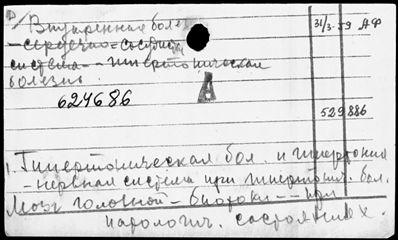 Внутренная болез
31/3-59 АФ
- сердечно-сосудист
система -- гипертоническая
болезнь.
624686
А
529886
1. Гипертоническая бол. и гипертония
- нервная система при гипертонич. бол.
Мозг головной - биотоки -- при
патологич. состояниях.